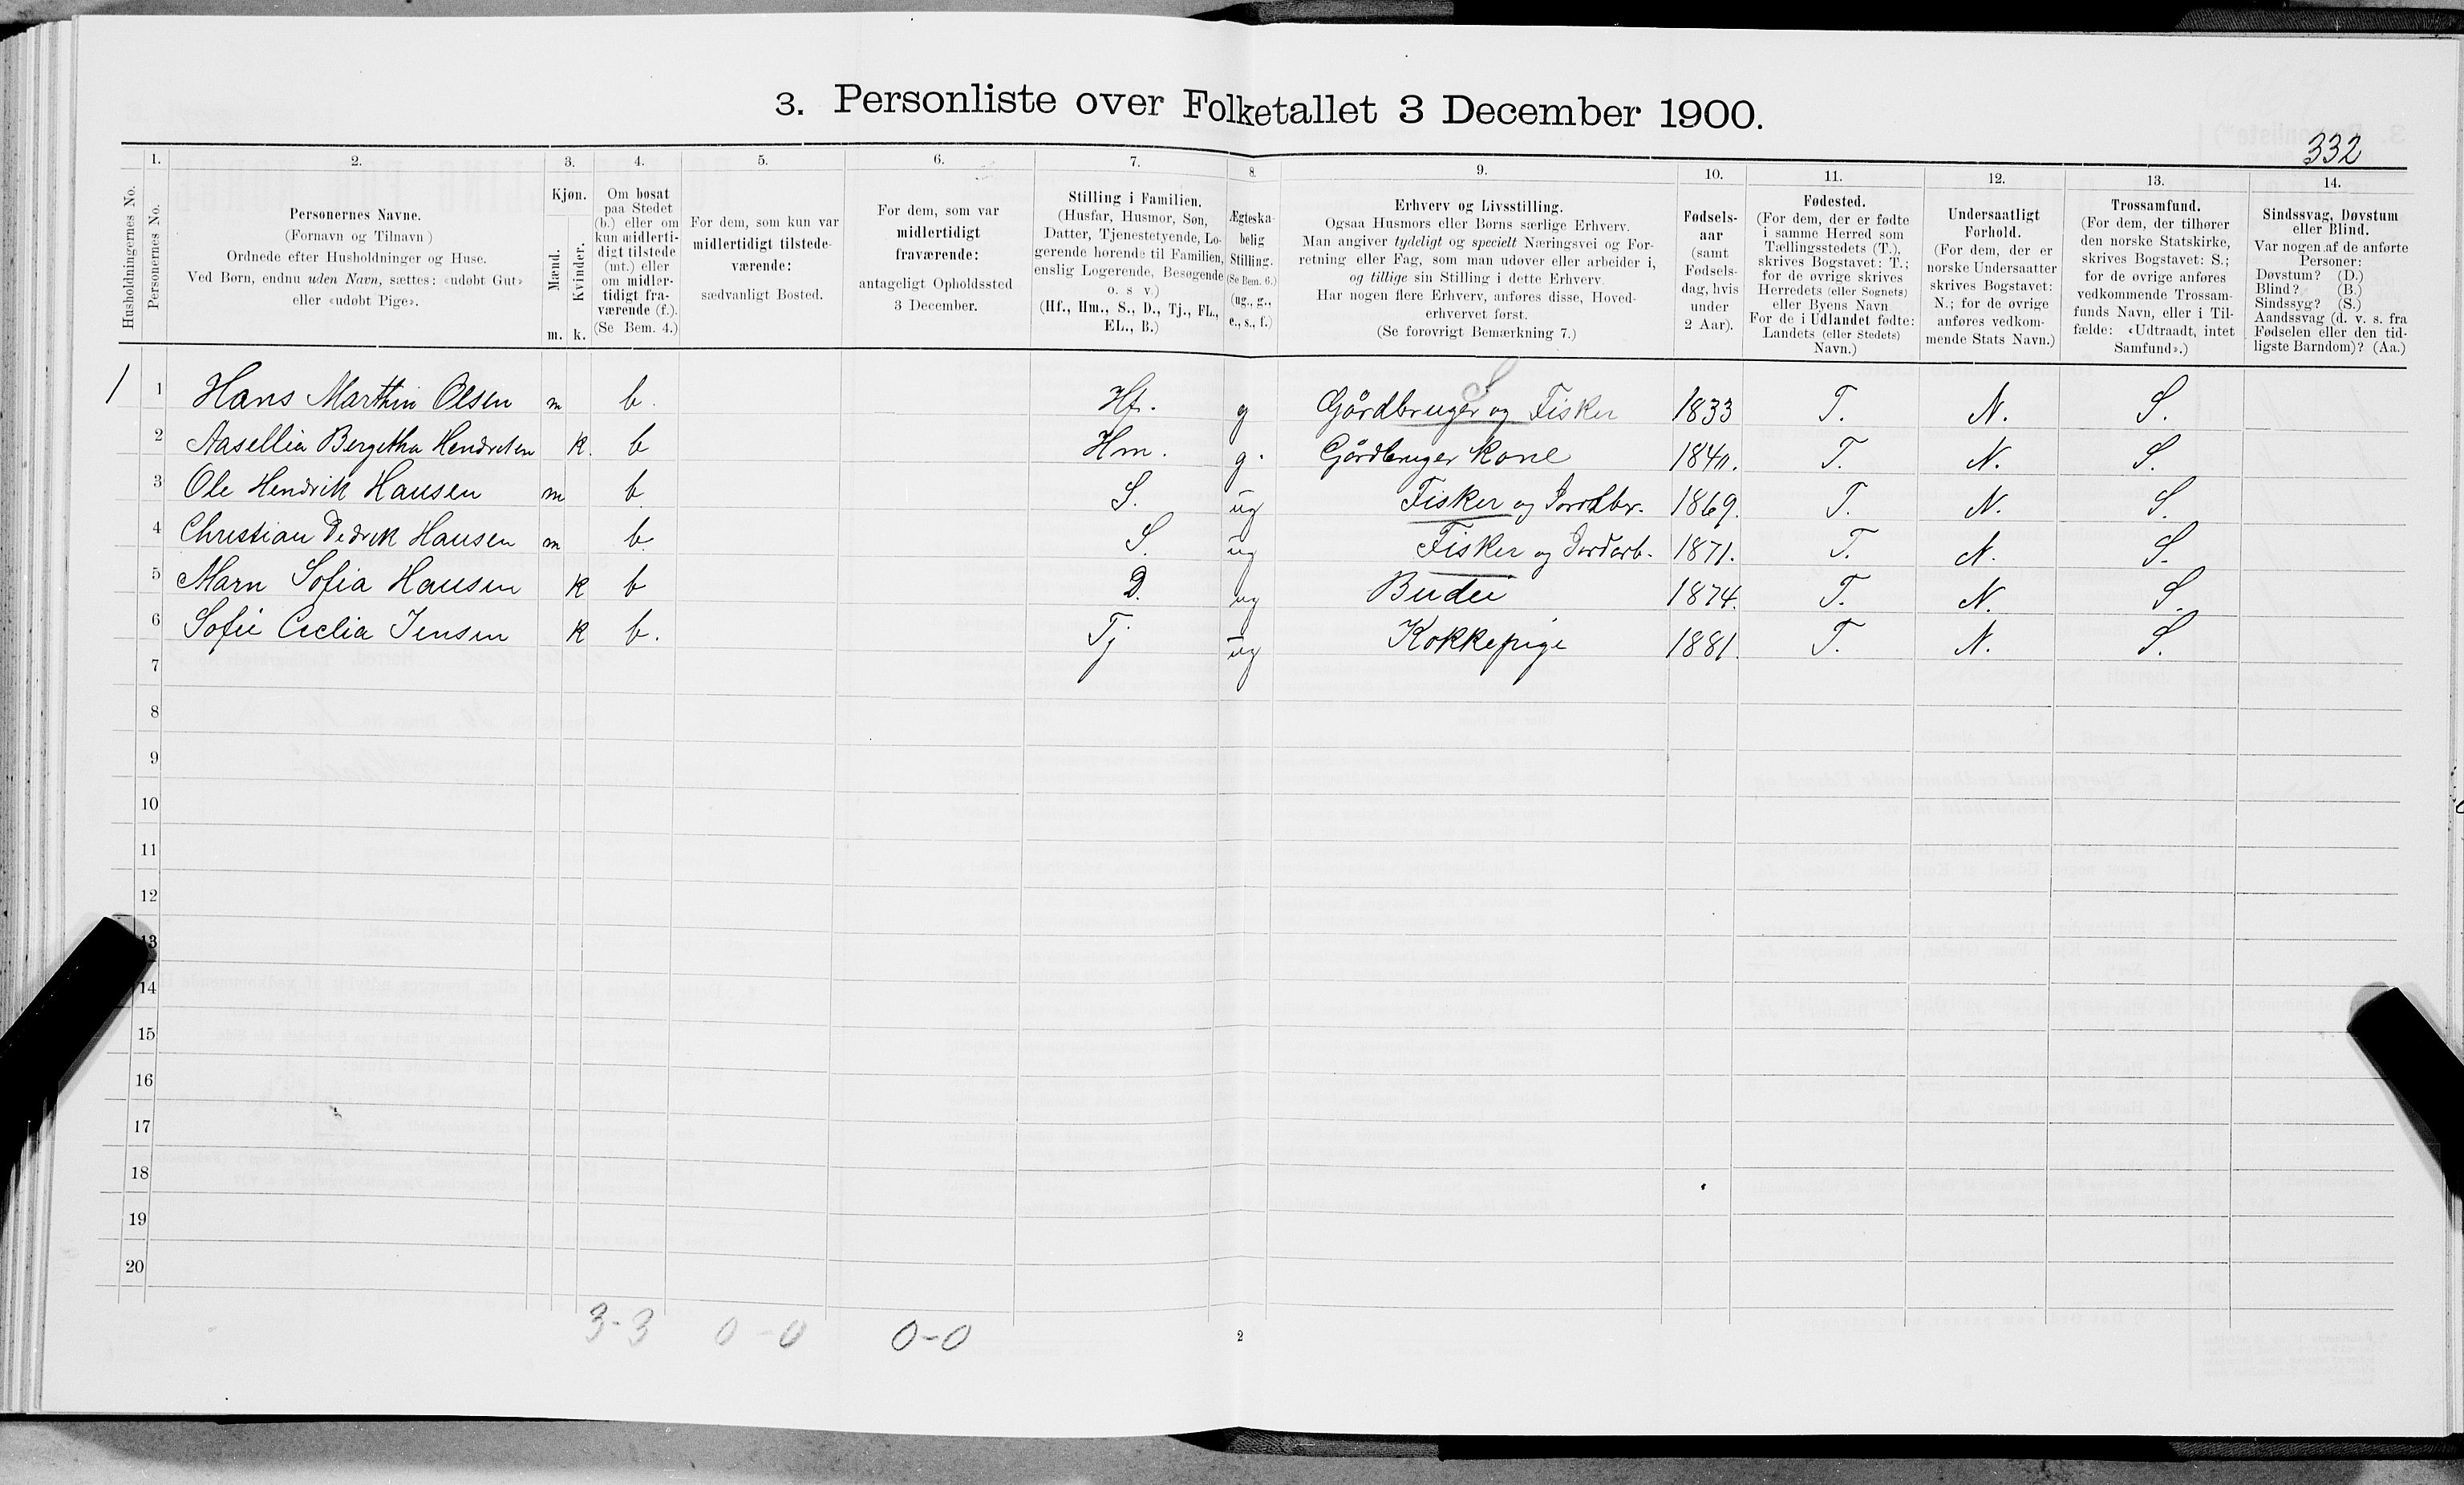 3. Personliste over Folketallet 3 December 1900.
332
1. 2. 3. 4. 5. 6. 7. 8. 9. 10. 11. 12. 13. 14.
Husholdningernes No.
Personernes No.
Personernes Navne.
(Fornavn og Tilnavn)
Ordnede efter Husholdninger og Huse.
Ved Børn, endnu uden Navn, sættes: «udøbt Gut»
eller «udøbt Pige».
Kjøn.
Mænd.
Kvinder.
m. k.
Om bosat
paa Stedet
(b.) eller om
kun midlerti-
digt tilstede
(mt.) eller
om midler-
tidigt fra-
værende (f.).
(Se Bem. 4.)
For dem, som kun var
midlertidigt tilstede-
værende:
sædvanligt Bosted.
For dem, som var
midlertidigt
fraværende:
antageligt Opholdssted
3 December.
Stilling i Familien.
(Husfar, Husmor, Søn,
Datter, Tjenestetyende, Lo-
gerende hørende til Familien,
enslig Logerende, Besøgende
o. s v.)
(Hf., Hm., S., D., Tj., FL.,
EL., B.)
Ægteska-
belig
Stilling.
(Se Bem. 6.)
(ug., g.,
e., s., f.)
Erhverv og Livsstilling.
Ogsaa Husmors eller Børns særlige Erhverv.
Man angiver tydeligt og specielt Næringsvei og For-
retning eller Fag, som man udøver eller arbeider i,
og tillige sin Stilling i dette Erhverv.
Har nogen flere Erhverv, anføres disse, Hoved-
erhvervet først.
(Se forøvrigt Bemærkning 7.)
Fødsels-
aar
(samt
Fødsels-
dag, hvis
under
2 Aar).
Fødested.
(For dem, der er fødte
i samme Herred som
Tællingsstedets (T.),
skrives Bogstavet: T.;
for de øvrige skrives
Herredets (eller Sognets)
eller Byens Navn
For de i Udlandet fødte:
Landets (eller Stedets)
Navn.)
Undersaatligt
Forhold.
(For dem, der er
norske Undersaatter
skrives Bogstavet:
N.; for de øvrige
anføres vedkom-
mende Stats Navn.)
Trossamfund.
(For dem, der tilhører
den norske Statskirke,
skrives Bogstavet: S.;
for de øvrige anføres
vedkommende Trossam-
funds Navn, eller i Til-
fælde: «Udtraadt, intet
Samfund».)
Sindssvag, Døvstum
eller Blind.
Var nogen af de anførte
Personer:
Døvstum? (D.)
Blind? (B.)
Sindssyg? (S.)
Aandssvag (d. v. s. fra
Fødselen eller den tid-
ligste Barndom)? (Aa.)
S
1 1 Hans Marthin Olsen m b. Hf. g Gårdbruger og Fisker 1833 T. N. S.
2 Aasellia Bergetha Hendriksen k. b Hm. g. Gårdbruger Kone 1840. T. N. S.
3 Ole Hendrik Hansen m b S. ug Fisker og Jordbr. 1869. T. N. S.
4 Christian Dedrik Hansen m b. S. ug Fisker og Jordarb. 1871. T. N. S.
5 Marn Sofia Hansen k b D. ug Budei 1874. T. N. S.
6 Sofie Cecilia Jensen k b. Tj ug Kokkepige 1881. T. N. S.
7
8
9
10
11
12
13
14
15
16
17
18
19
20
3-3 0-0 0-0
2